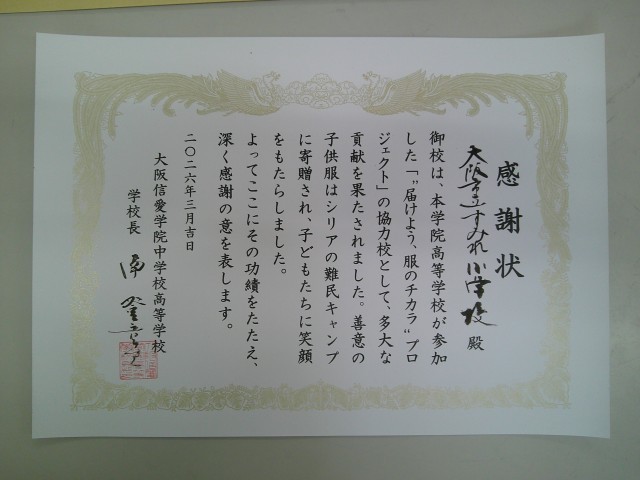 感謝状
大阪市立すみれ小学校 殿
御校は、本学院高等学校が参加
した「"届けよう、服のチカラ"プロ
ジェクト」の協力校として、多大な
貢献を果たされました。善意の
子供服はシリアの難民キャンプ
に寄贈され、子どもたちに笑顔
をもたらしました。
よってここにその功績をたたえ、
深く感謝の意を表します。
二〇二六年三月吉日
大阪信愛学院中学校高等学校
学校長